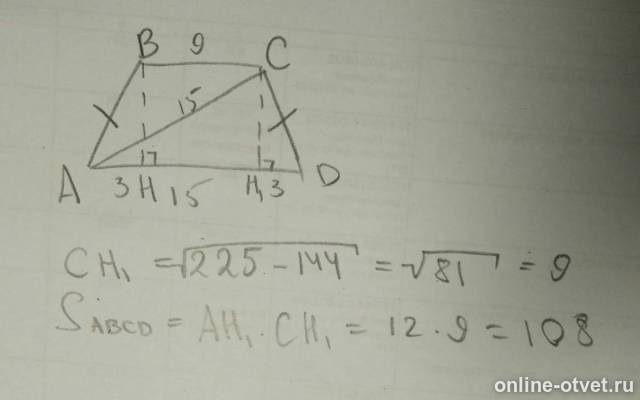 B 9 C
15
A 3 H 15 H₁ 3 D
CH₁ = √225 - 144 = √81 = 9
SABCD = AH₁ · CH₁ = 12 · 9 = 108
online-otvet.ru